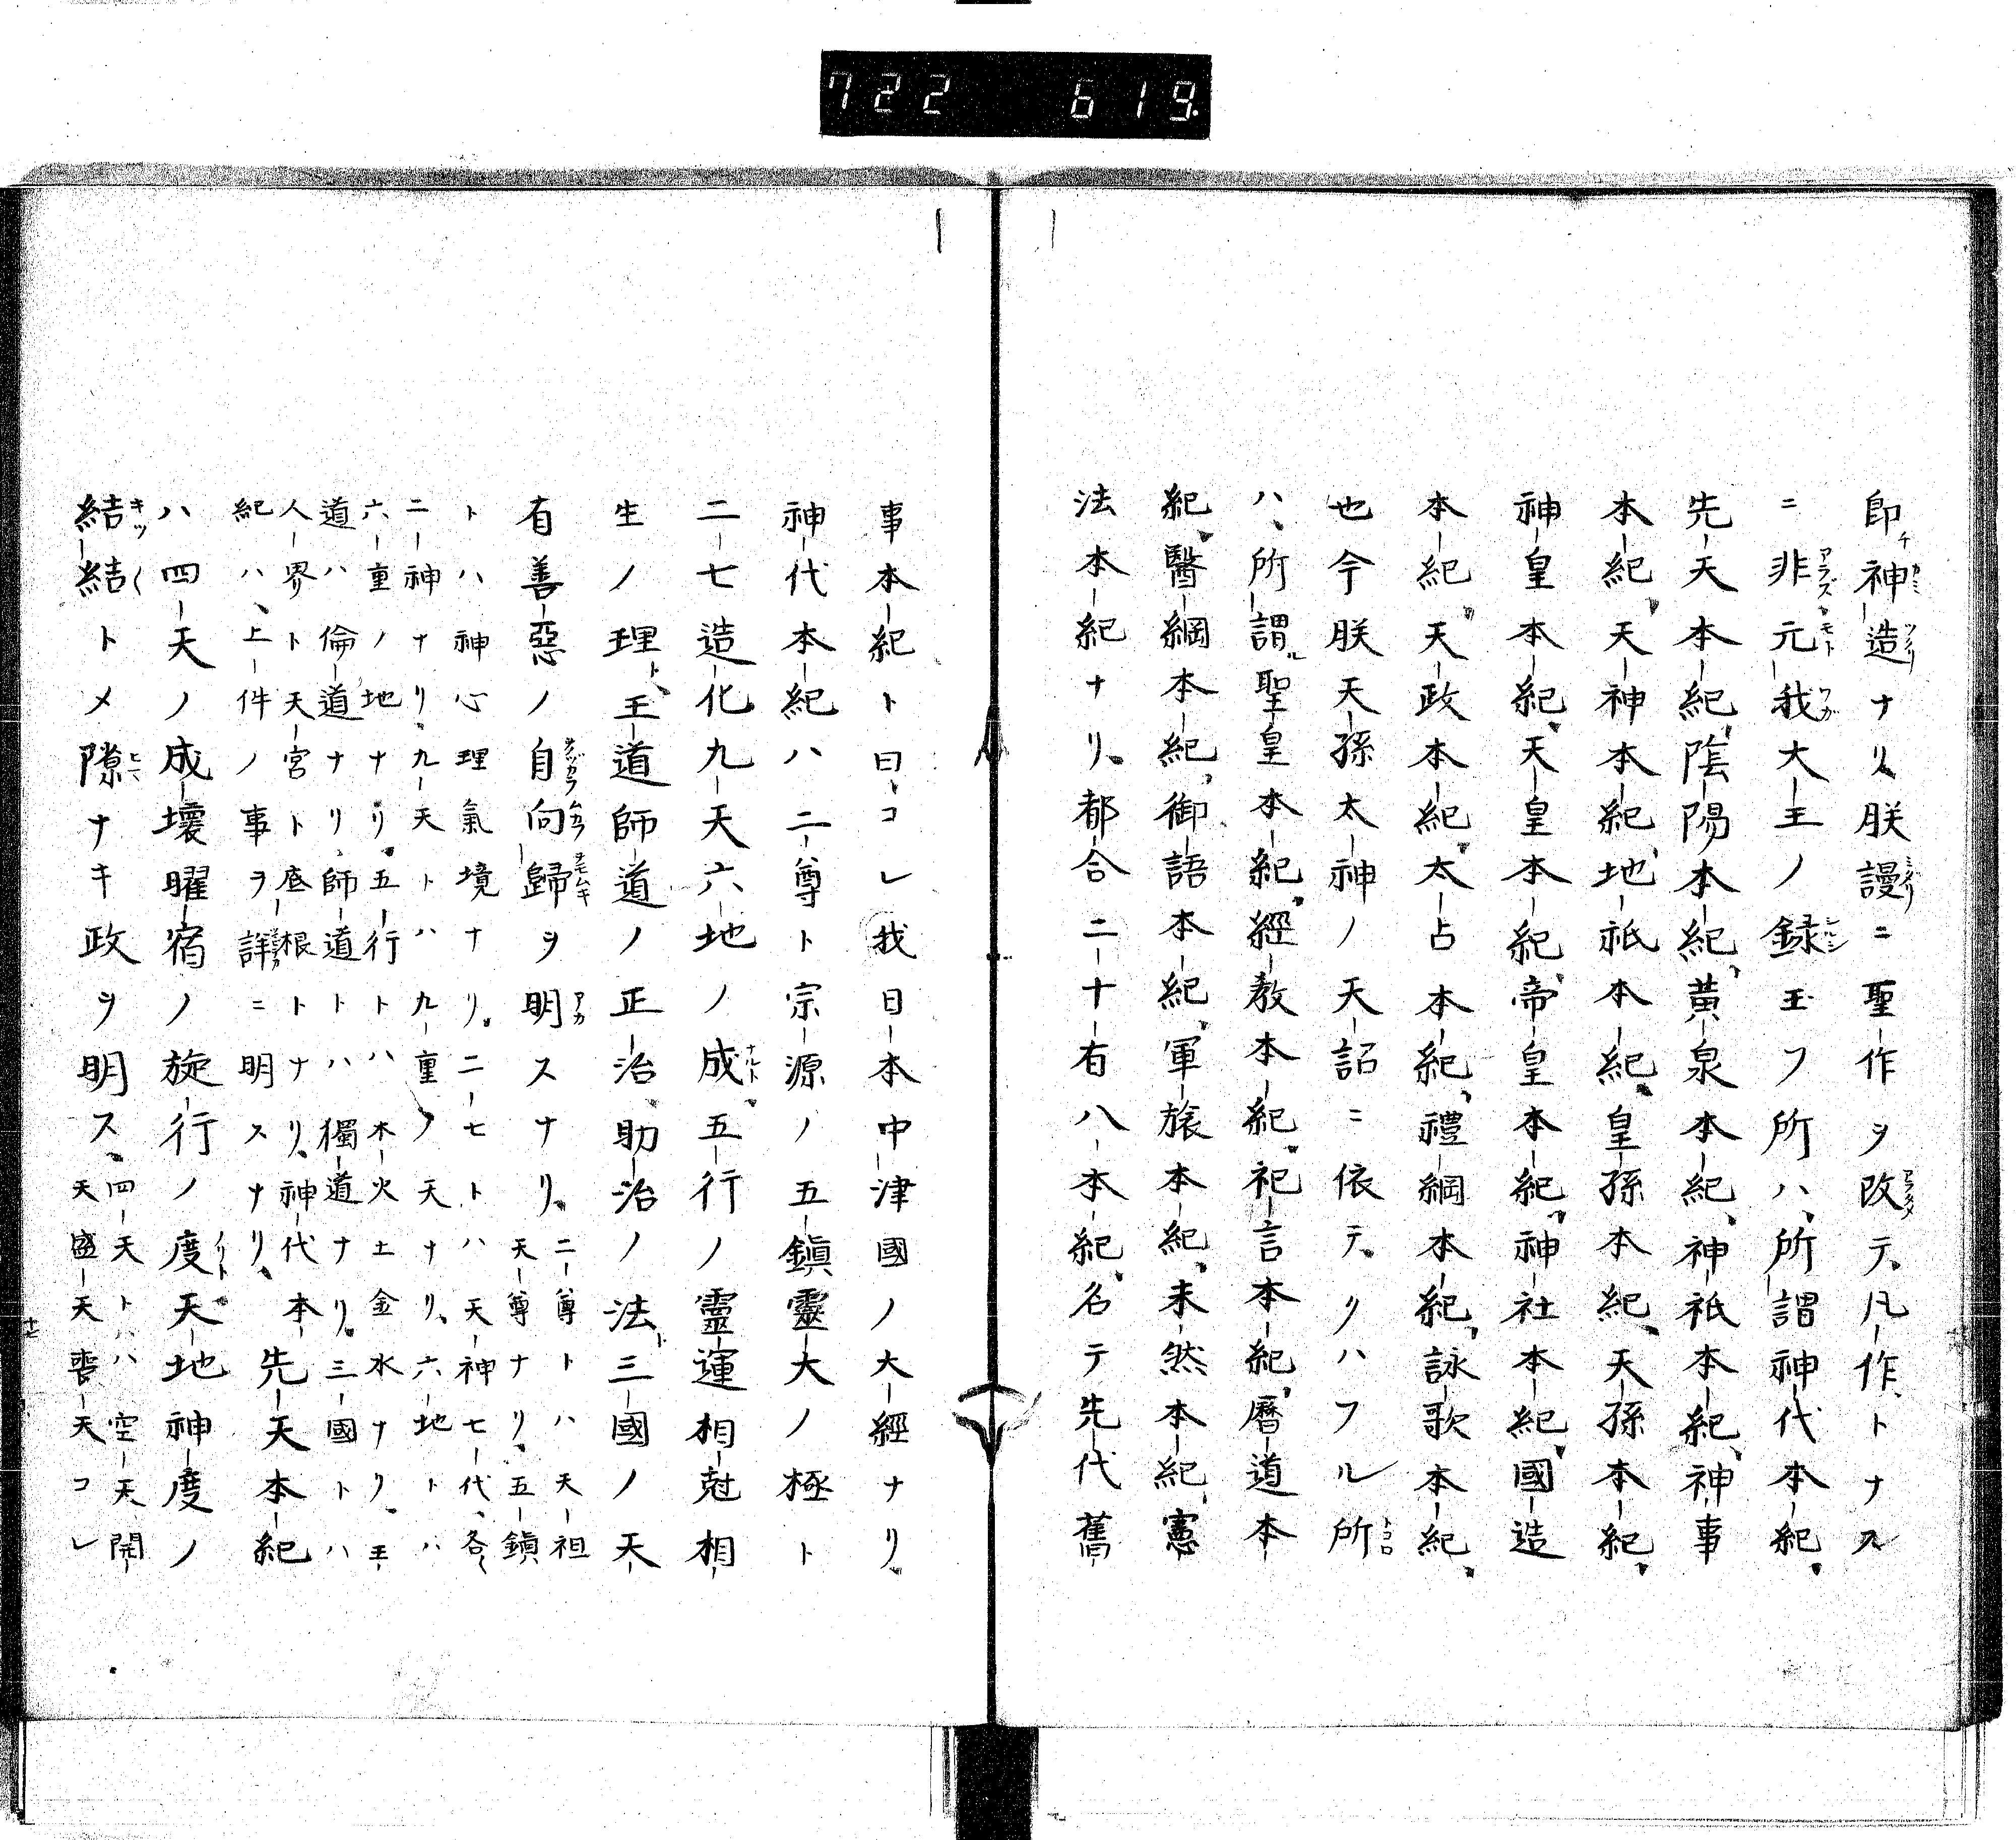 722 619.
即チ神造ナリ、朕謾ニ聖作ヲ改テ、凡作トナス
ニ非元我大王ノ録玉フ所ハ、所謂神代本紀、
先天本紀、陰陽本紀、黄泉本紀、神祇本紀、神事
本紀、天神本紀、地祇本紀、皇孫本紀、天孫本紀、
神皇本紀、天皇本紀、帝皇本紀、神社本紀、國造
本紀、天政本紀、太占本紀、禮綱本紀、詠歌本紀、
也今朕天孫太神ノ天詔ニ依テ、リハフル所
ハ、所謂ル聖皇本紀、經教本紀、祀言本紀、暦道本
紀、醫綱本紀、御語本紀、軍旅本紀、未然本紀、憲
法本紀ナリ、都合二十有八本紀、名テ先代舊
事本紀ト曰、コレ我日本中津國ノ大經ナリ。
神代本紀ハ二尊ト宗源ノ五鎭靈大ノ極ト
二七造化九天六地ノ成、五行ノ靈運相尅相
生ノ理ト、王道師道ノ正治、助治ノ法ト、三國ノ天
有善惡ノ自向歸ヲ明スナリ。二尊トハ天祖
天尊ナリ、五鎭
トハ神心理氣境ナリ。二七トハ天神七代、各〱
二神ナリ。九天トハ九重ノ天ナリ、六地トハ
六重ノ地ナリ。五行トハ木火土金水ナリ。王
道ハ倫道ナリ、師道トハ獨道ナリ。三國トハ
人界ト天宮ト底根トナリ、神代本
紀ハ、上件ノ事ヲ詳ニ明スナリ、先天本紀
ハ四天ノ成壞曜宿ノ旋行ノ度、天地神度ノ
結結トメ隙ナキ政ヲ明ス、四天トハ空天開
天盛天喪天コレ